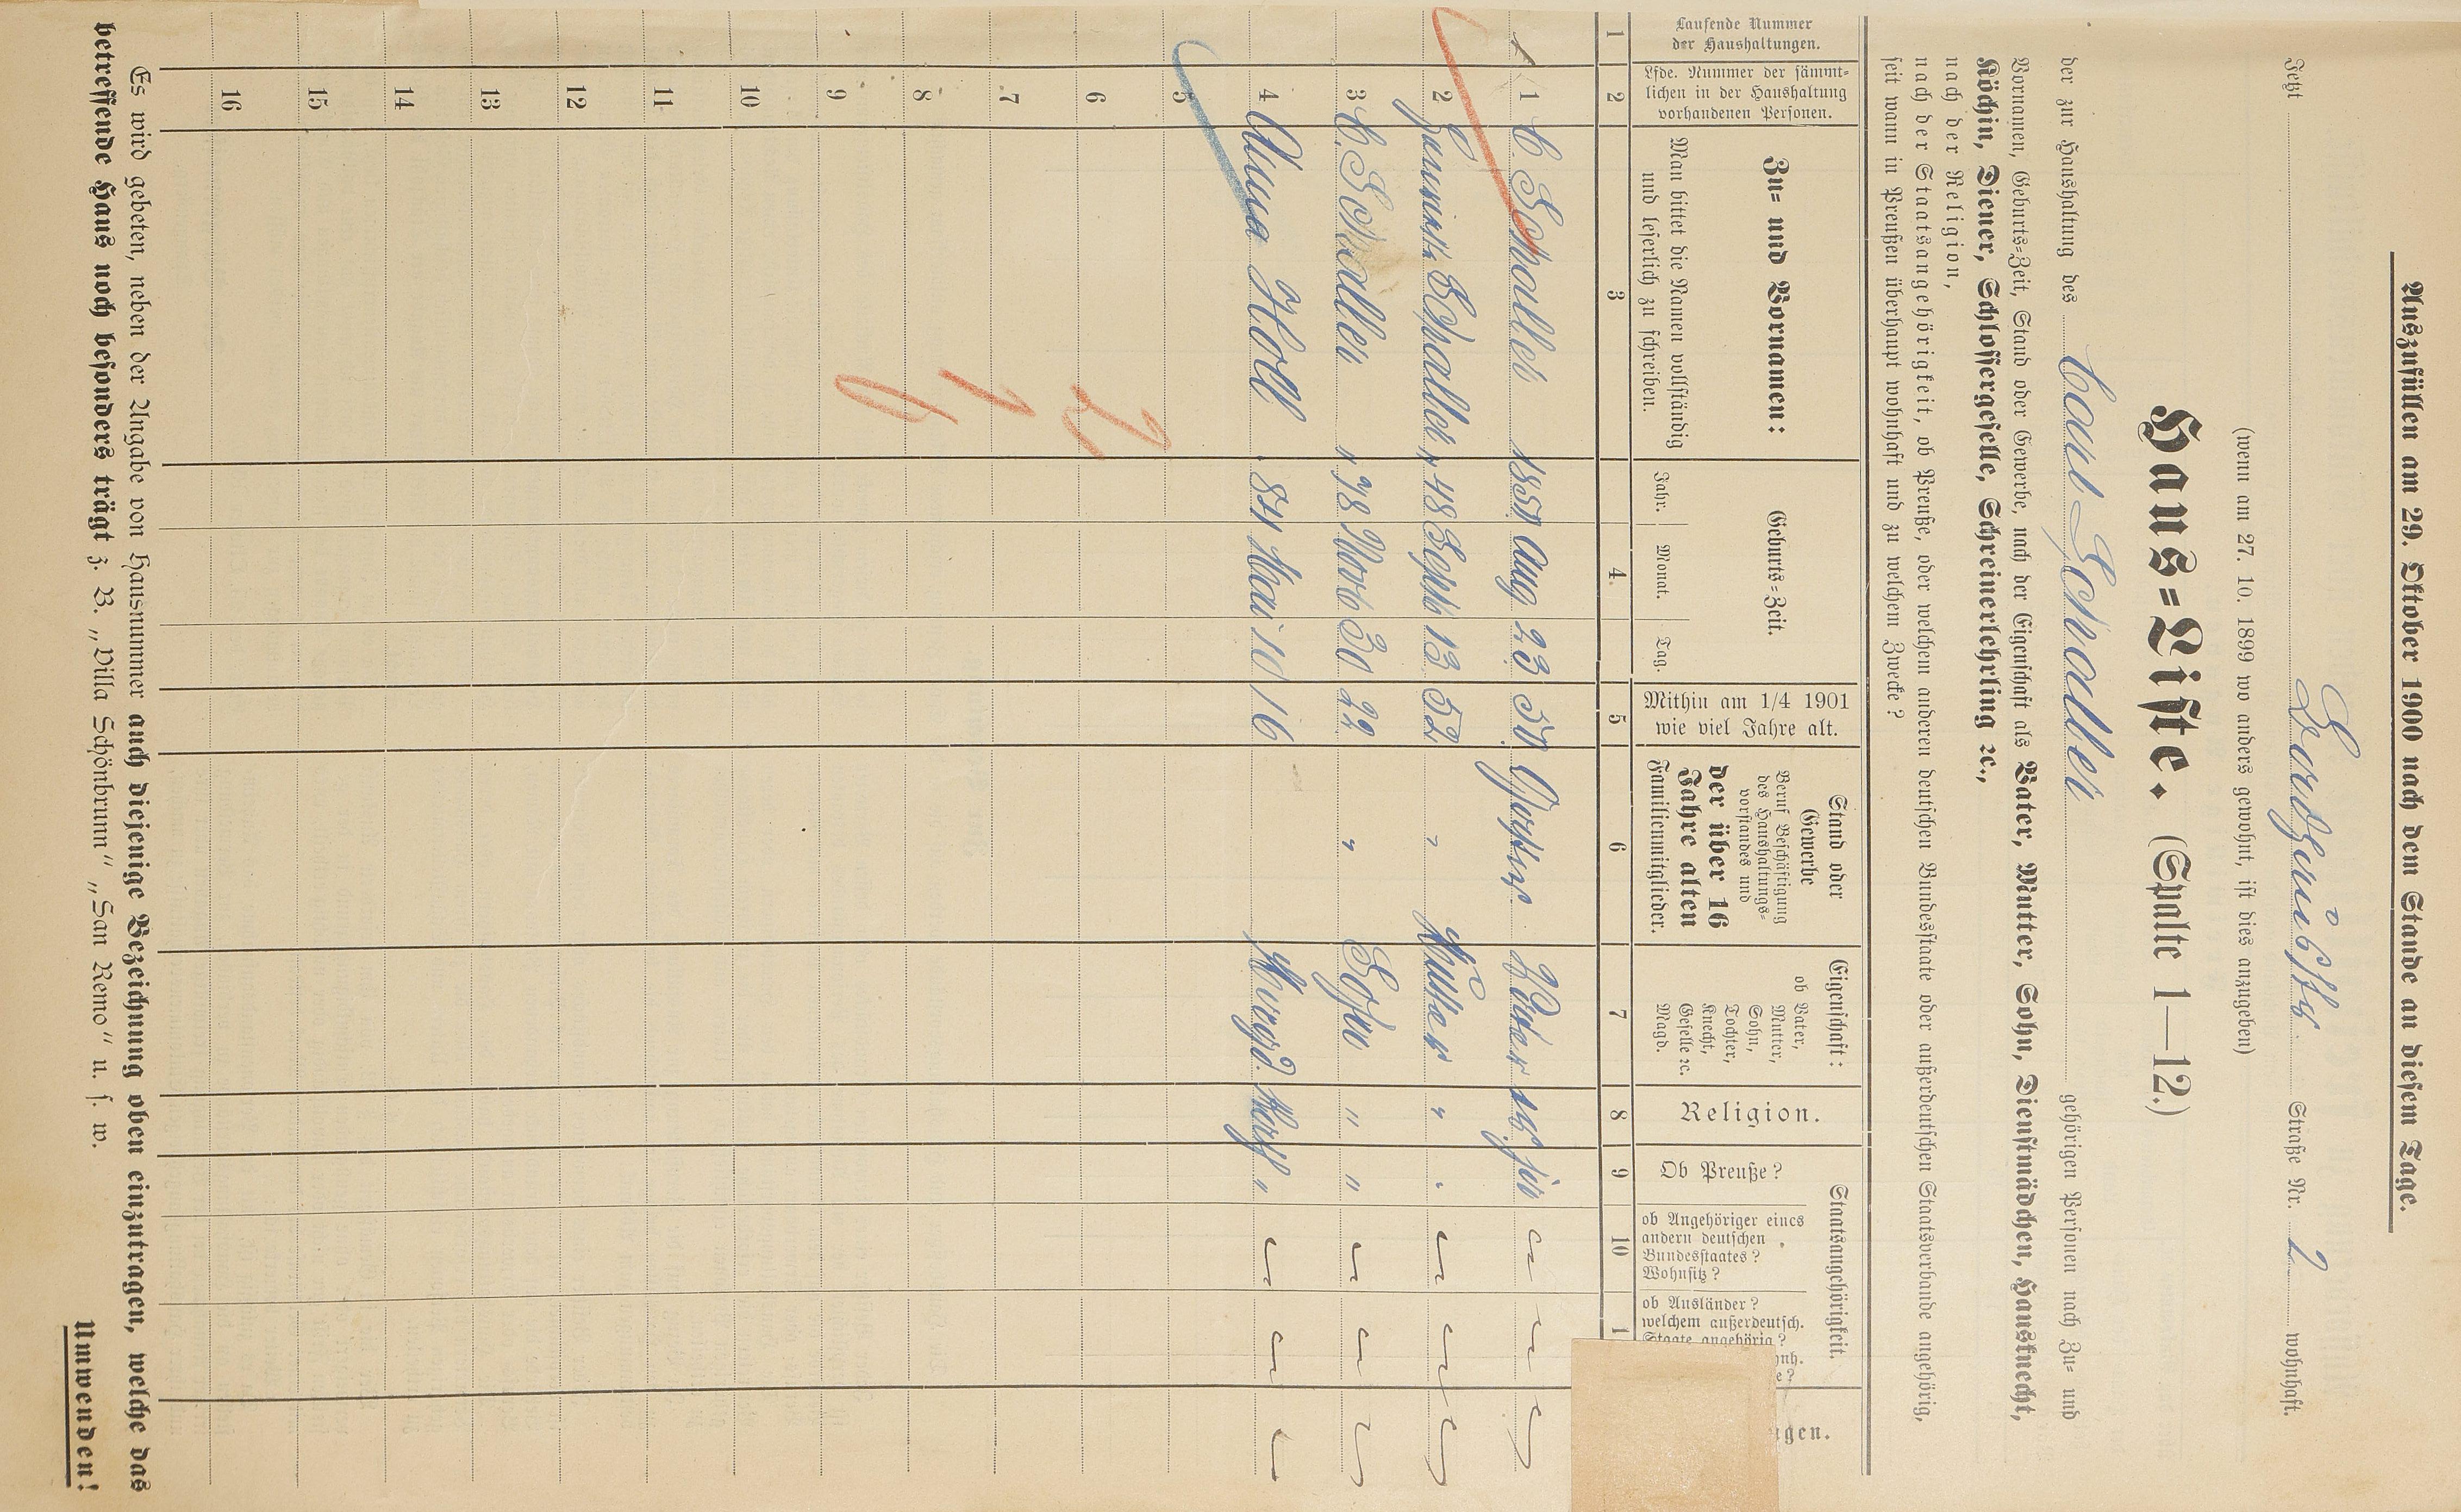 Auszufüllen am 29. Oktober 1900 nach dem Stande an diesem Tage.
Jetzt Straße Nr. 2 wohnhaft.
(wenn am 27. 10. 1899 wo anders gewohnt, ist dies anzugeben)
Haus-Liste. (Spalte 1—12.)
der zur Haushaltung des Schaller gehörigen Personen nach Zu- und
Vornamen, Geburts-Zeit, Stand oder Gewerbe, nach der Eigenschaft als Vater, Mutter, Sohn, Dienstmädchen, Hausknecht,
Köchin, Diener, Schlossergeselle, Schreinerlehrling ꝛc.,
nach der Religion,
nach der Staatsangehörigkeit, ob Preuße, oder welchem anderen deutschen Bundesstaate oder außerdeutschen Staatsverbande angehörig,
seit wann in Preußen überhaupt wohnhaft und zu welchem Zwecke?
Laufende Nummer der Haushaltungen.
Lfde. Nummer der sämmt-
lichen in der Haushaltung
vorhandenen Personen.
Zu- und Vornamen:
Man bittet die Namen vollständig
und leserlich zu schreiben.
Geburts-Zeit.
Jahr. Monat. Tag.
Mithin am 1/4 1901
wie viel Jahre alt.
Stand oder
Gewerbe
Beruf Beschäftigung
des Haushaltungs-
vorstandes und
der über 16
Jahre alten
Familienmitglieder.
Eigenschaft:
ob Vater,
Mutter,
Sohn,
Tochter,
Knecht,
Geselle ꝛc.
Magd.
Religion.
Staatsangehörigkeit.
Ob Preuße?
ob Angehöriger eines
andern deutschen
Bundesstaates?
Wohnsitz?
ob Ausländer?
welchem außerdeutsch.
Staate angehörig?
1 2 3 4. 5 6 7 8 9 10 1
1 1 C. Schaller Aug 23 50 Vater
2 Schaller " 48 Sept 13 52 " Mutter " "
3 C. Schaller " 78 Nov 30 22 " Sohn " "
4 Anna Holl " 84 Mai 10 16 "
5
6
7
8
9
10
11
12
13
14
15
16
Es wird gebeten, neben der Angabe von Hausnummer auch diejenige Bezeichnung oben einzutragen, welche das
betreffende Haus noch besonders trägt z. B. „Villa Schönbrunn" „San Remo" u. s. w.
Umwenden!